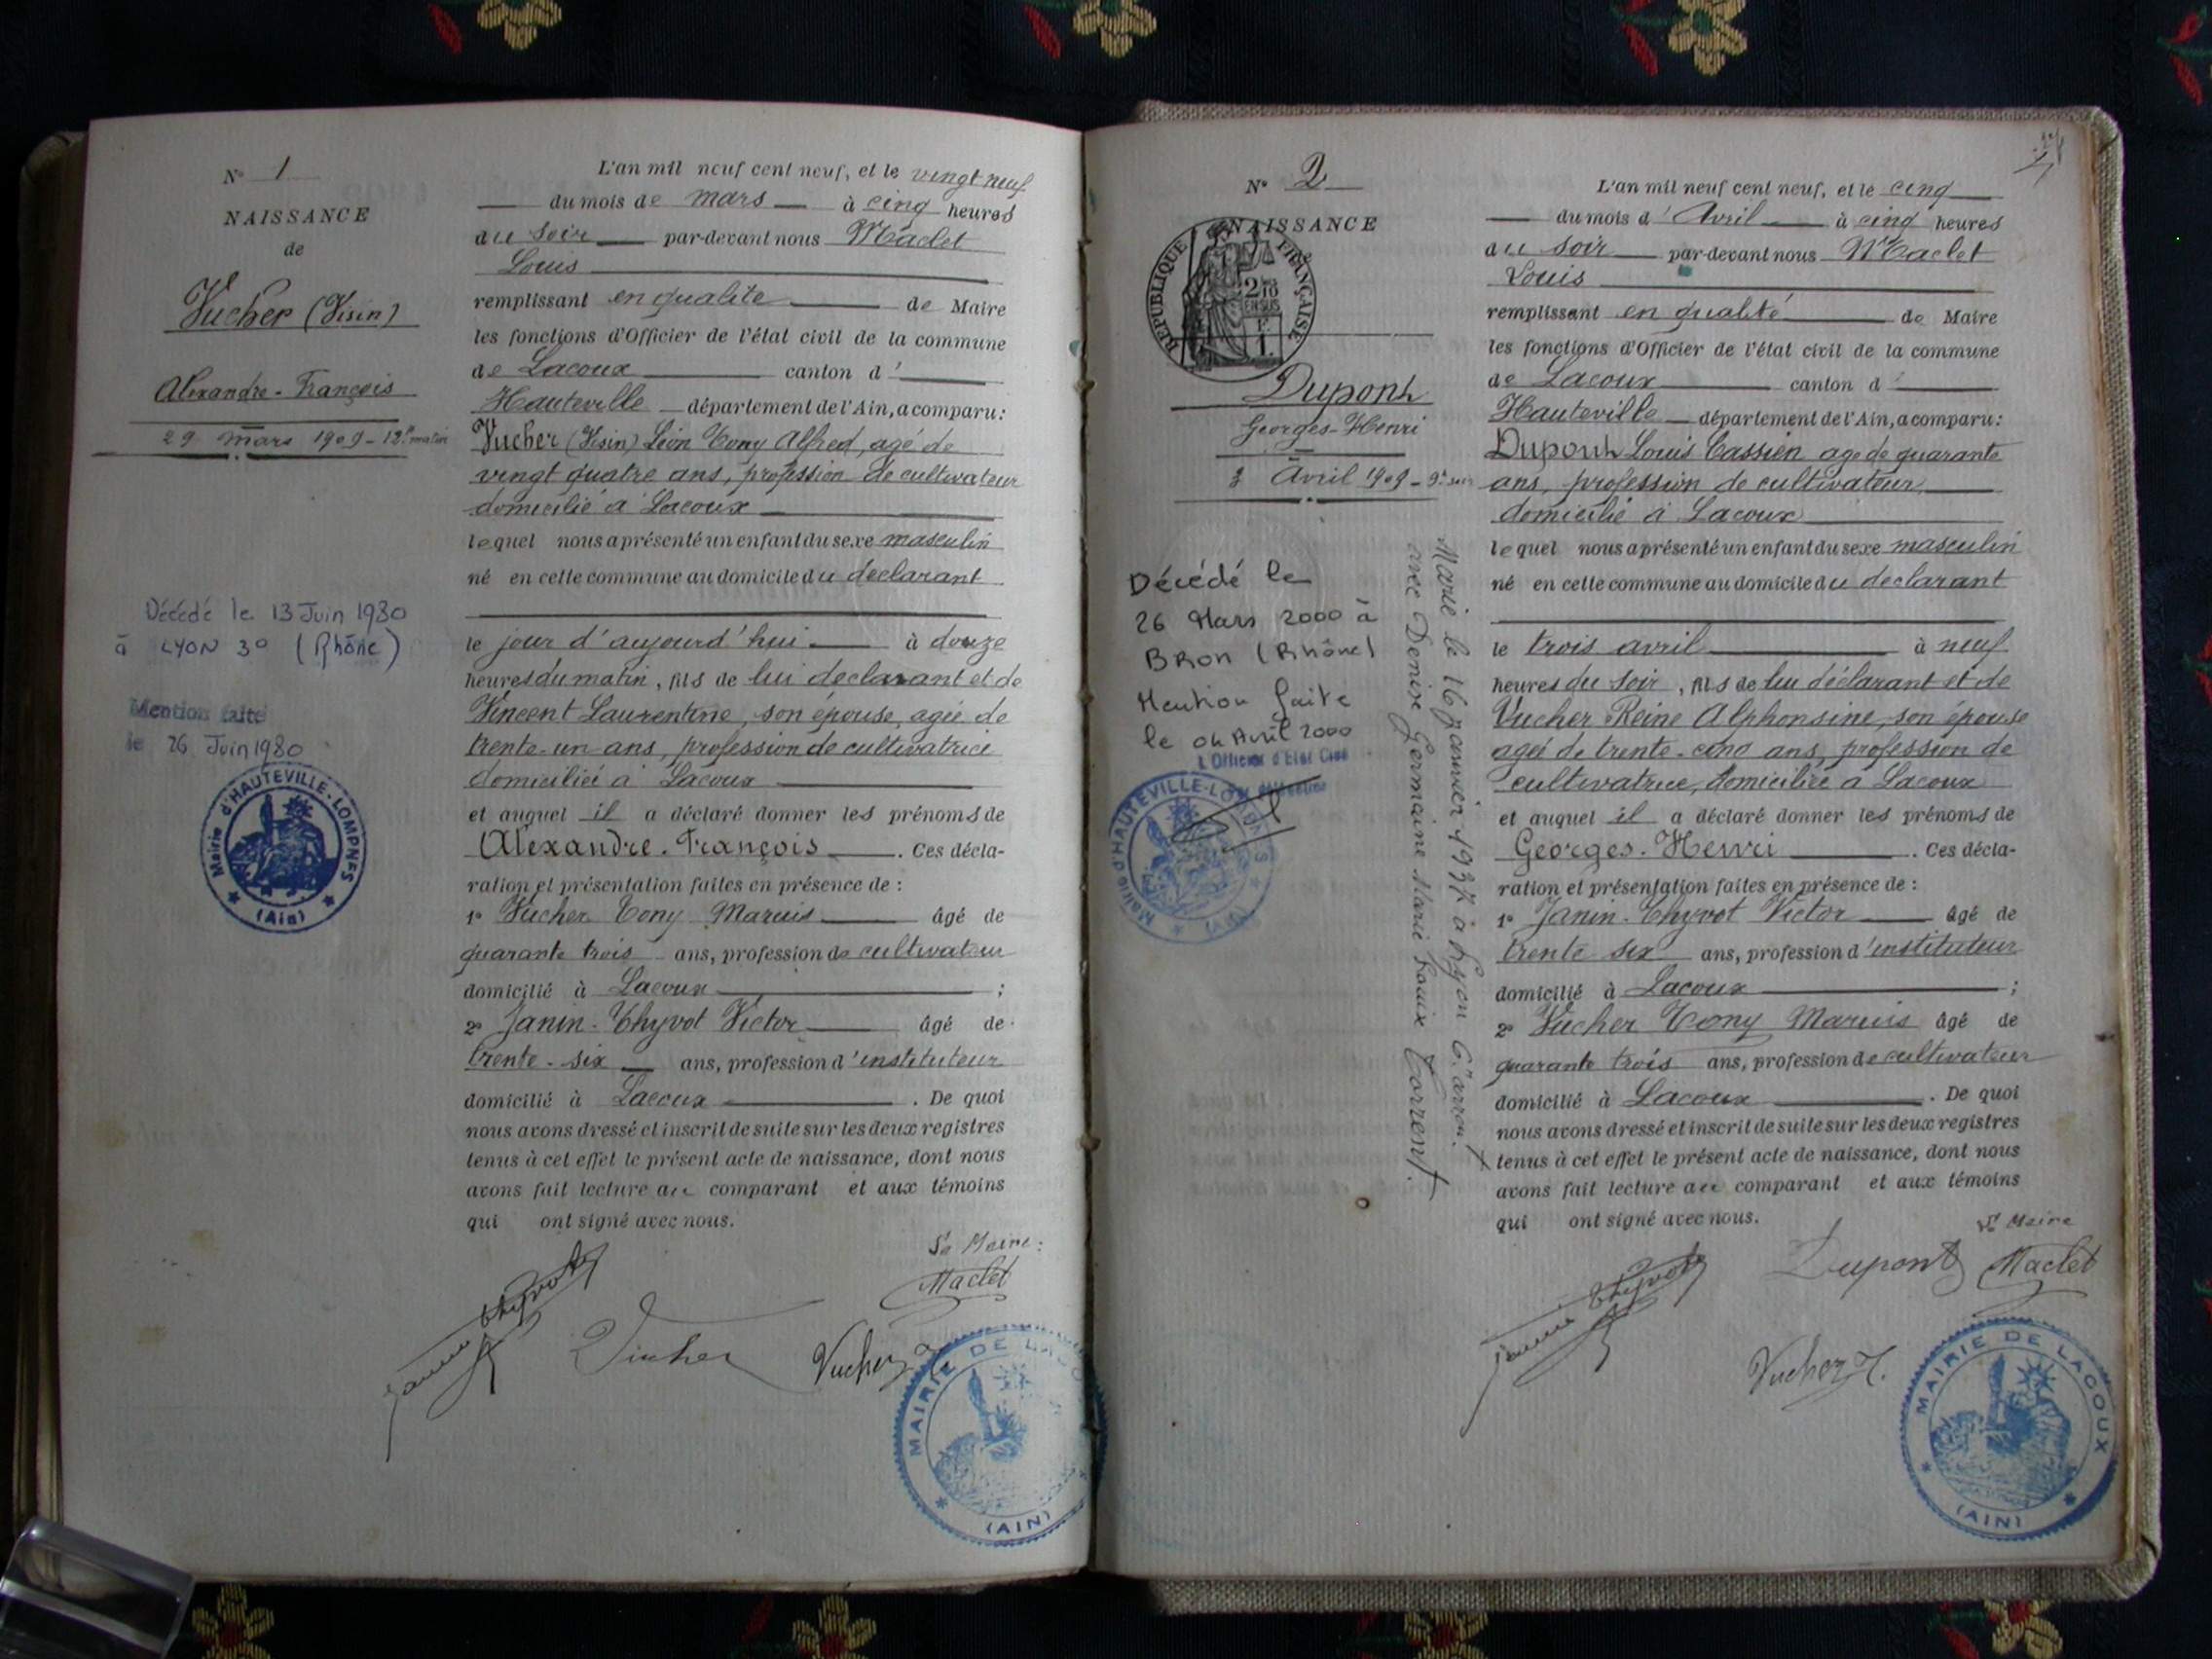 N° 1
NAISSANCE
de
Vucher (Visin)
Alexandre-François
29 mars 1909 - 12h matin
Décédé le 13 Juin 1980
à LYON 3° (Rhône)
Mention faite
le 26 Juin 1980
Mairie d'HAUTEVILLE-LOMPNES
(Ain)
L'an mil neuf cent neuf, et le vingt neuf
du mois de mars à cinq heures
du soir par-devant nous Maclet
Louis
remplissant en qualité de Maire
les fonctions d'Officier de l'état civil de la commune
de Lacoux canton d'
Hauteville département de l'Ain, a comparu:
Vucher (Visin) Léon Tony Alfred, agé de
vingt quatre ans, profession de cultivateur
domicilié à Lacoux
lequel nous a présenté un enfant du sexe masculin
né en cette commune au domicile du déclarant
le jour d'aujourd'hui à douze
heures du matin, fils de lui déclarant et de
Vincent Laurentine, son épouse, agée de
trente-un ans, profession de cultivatrice
domiciliée à Lacoux
et auquel il a déclaré donner les prénoms de
Alexandre-François. Ces décla-
ration et présentation faites en présence de :
1° Vucher Tony Marius âgé de
quarante trois ans, profession de cultivateur
domicilié à Lacoux ;
2° Janin-Thyvot Victor âgé de
trente-six ans, profession d'instituteur
domicilié à Lacoux. De quoi
nous avons dressé et inscrit de suite sur les deux registres
tenus à cet effet le présent acte de naissance, dont nous
avons fait lecture au comparant et aux témoins
qui ont signé avec nous.
Le Maire:
Maclet
Janin Thyvot
Vucher
Vucher T.
MAIRIE DE LACOUX
(AIN)
N° 2
NAISSANCE
REPUBLIQUE FRANÇAISE
2/10 EN SUS
Dupont
Georges-Henri
3 Avril 1909 - 9h soir
Décédé le
26 Mars 2000 à
BRON (Rhône)
Mention faite
le 04 Avril 2000
L'Officier d'Etat Civil
Mairie d'HAUTEVILLE-LOMPNES
(AIN)
Marié le 16 janvier 1937 à Lyon 6e arront
avec Denise Germaine Marie Louise Torrent.
L'an mil neuf cent neuf, et le cinq
du mois d'Avril à cinq heures
du soir par-devant nous Maclet
Louis
remplissant en qualité de Maire
les fonctions d'Officier de l'état civil de la commune
de Lacoux canton d'
Hauteville département de l'Ain, a comparu:
Dupont Louis Cassien age de quarante
ans, profession de cultivateur,
domicilié à Lacoux
lequel nous a présenté un enfant du sexe masculin
né en cette commune au domicile du déclarant
le trois avril à neuf
heures du soir, fils de lui déclarant et de
Vucher Reine Alphonsine, son épouse
agée de trente-cinq ans, profession de
cultivatrice, domiciliée à Lacoux
et auquel il a déclaré donner les prénoms de
Georges-Henri. Ces décla-
ration et présentation faites en présence de :
1° Janin-Thyvot Victor âgé de
trente six ans, profession d'instituteur
domicilié à Lacoux ;
2° Vucher Tony Marius âgé de
quarante trois ans, profession de cultivateur
domicilié à Lacoux. De quoi
nous avons dressé et inscrit de suite sur les deux registres
tenus à cet effet le présent acte de naissance, dont nous
avons fait lecture au comparant et aux témoins
qui ont signé avec nous.
Le Maire
Janin Thyvot
Dupont
Maclet
Vucher T.
MAIRIE DE LACOUX
(AIN)